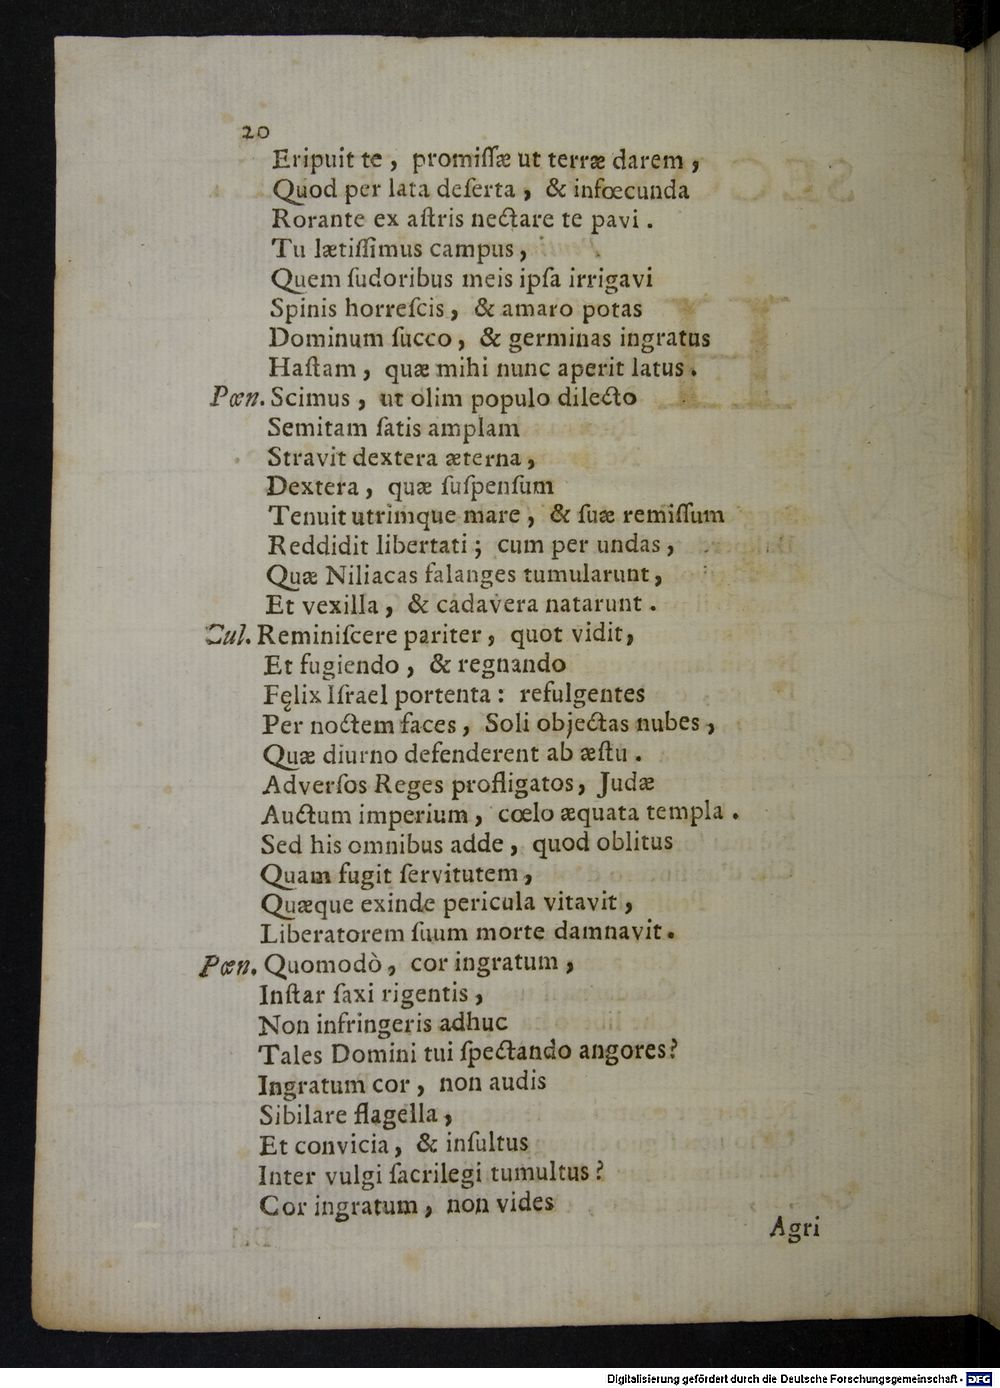 20
Eripuit te, promiſſæ ut terræ darem,
Quod per lata deſerta, & infœcunda
Rorante ex aſtris nectare te pavi.
Tu lætiſſimus campus,
Quem ſudoribus meis ipſa irrigavi
Spinis horreſcis, & amaro potas
Dominum ſucco, & germinas ingratus
Haſtam, quæ mihi nunc aperit latus.
Pœn. Scimus, ut olim populo dilecto
Semitam ſatis amplam
Stravit dextera æterna,
Dextera, quæ ſuſpenſum
Tenuit utrimque mare, & ſuæ remiſſum
Reddidit libertati; cum per undas,
Quæ Niliacas falanges tumularunt,
Et vexilla, & cadavera natarunt.
Cul. Reminiſcere pariter, quot vidit,
Et fugiendo, & regnando
Fęlix Iſrael portenta: refulgentes
Per noctem faces, Soli objectas nubes,
Quæ diurno defenderent ab æſtu.
Adverſos Reges profligatos, Judæ
Auctum imperium, cœlo æquata templa.
Sed his omnibus adde, quod oblitus
Quam fugit ſervitutem,
Quæque exinde pericula vitavit,
Liberatorem ſuum morte damnavit.
Pœn. Quomodò, cor ingratum,
Inſtar ſaxi rigentis,
Non infringeris adhuc
Tales Domini tui ſpectando angores?
Ingratum cor, non audis
Sibilare flagella,
Et convicia, & inſultus
Inter vulgi ſacrilegi tumultus?
Cor ingratum, non vides
Agri
Digitalisierung gefördert durch die Deutsche Forschungsgemeinschaft - DFG